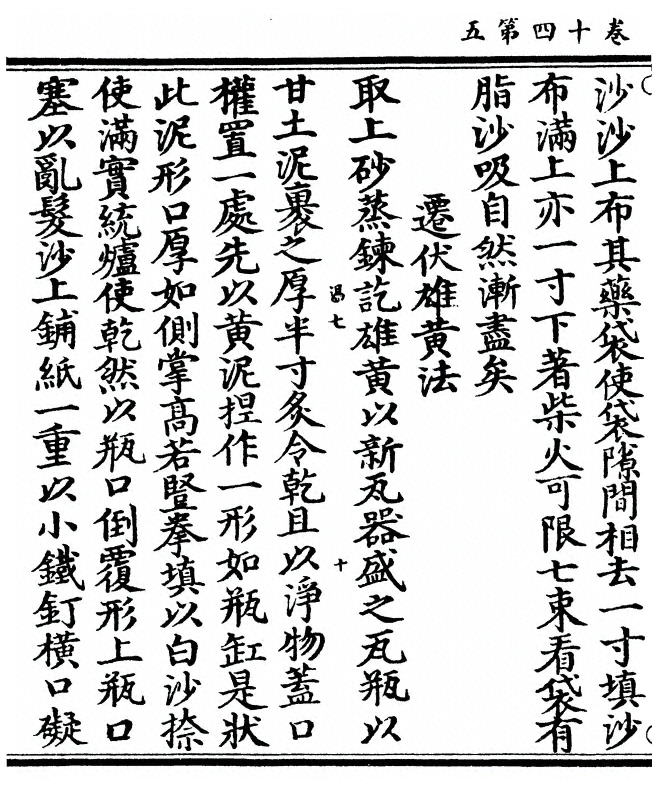 卷十四第五
沙沙上布其藥袋使袋隙間相去一寸填沙
布滿上亦一寸下著柴火可限七束看袋有
脂沙吸自然漸盡矣
遷伏雄黃法
取上砂蒸鍊訖雄黃以新瓦器盛之瓦瓶以
七
十
甘土泥裹之厚半寸炙令乾且以淨物蓋口
權置一處先以黃泥捏作一形如瓶缸是狀
此泥形口厚如側掌高若豎拳填以白沙捺
使滿實統爐使乾然以瓶口倒覆形上瓶口
塞以亂髮沙上鋪紙一重以小鐵釘橫口礙